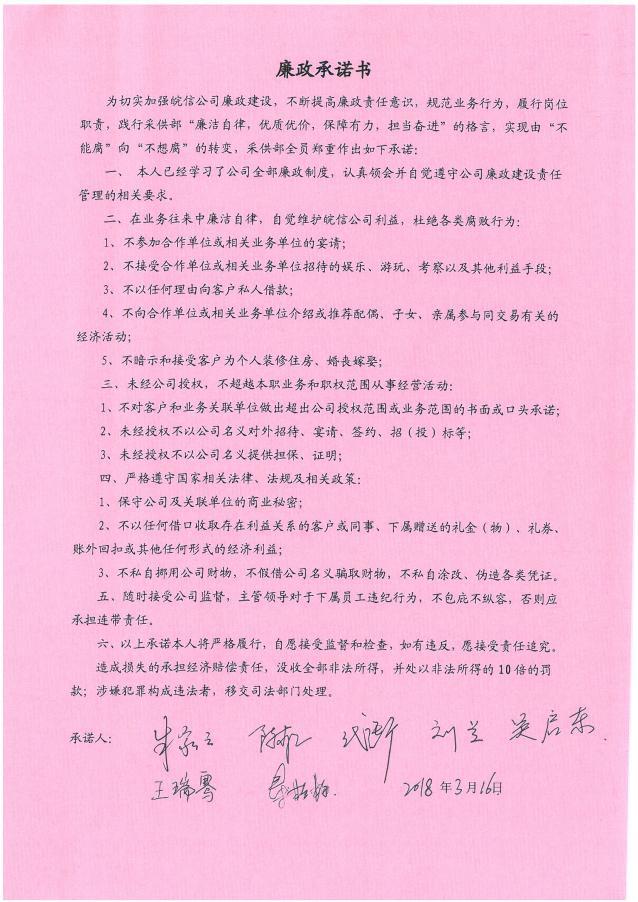 廉政承诺书
为切实加强皖信公司廉政建设，不断提高廉政责任意识，规范业务行为，履行岗位
职责，践行采供部“廉洁自律，优质优价，保障有力，担当奋进”的格言，实现由“不
能腐”向“不想腐”的转变，采供部全员郑重作出如下承诺：
一、 本人已经学习了公司全部廉政制度，认真领会并自觉遵守公司廉政建设责任
管理的相关要求。
二、在业务往来中廉洁自律，自觉维护皖信公司利益，杜绝各类腐败行为：
1、不参加合作单位或相关业务单位的宴请；
2、不接受合作单位或相关业务单位招待的娱乐、游玩、考察以及其他利益手段；
3、不以任何理由向客户私人借款；
4、不向合作单位或相关业务单位介绍或推荐配偶、子女、亲属参与同交易有关的
经济活动；
5、不暗示和接受客户为个人装修住房、婚丧嫁娶；
三、未经公司授权，不超越本职业务和职权范围从事经营活动：
1、不对客户和业务关联单位做出超出公司授权范围或业务范围的书面或口头承诺；
2、未经授权不以公司名义对外招待、宴请、签约、招（投）标等；
3、未经授权不以公司名义提供担保、证明；
四、严格遵守国家相关法律、法规及相关政策：
1、保守公司及关联单位的商业秘密；
2、不以任何借口收取存在利益关系的客户或同事、下属赠送的礼金（物）、礼券、
账外回扣或其他任何形式的经济利益；
3、不私自挪用公司财物，不假借公司名义骗取财物，不私自涂改、伪造各类凭证。
五、随时接受公司监督，主管领导对于下属员工违纪行为，不包庇不纵容，否则应
承担连带责任。
六、以上承诺本人将严格履行，自愿接受监督和检查，如有违反，愿接受责任追究。
造成损失的承担经济赔偿责任，没收全部非法所得，并处以非法所得的10倍的罚
款；涉嫌犯罪构成违法者，移交司法部门处理。
承诺人： 刘兰 吴启东
王瑞 2018年3月16日